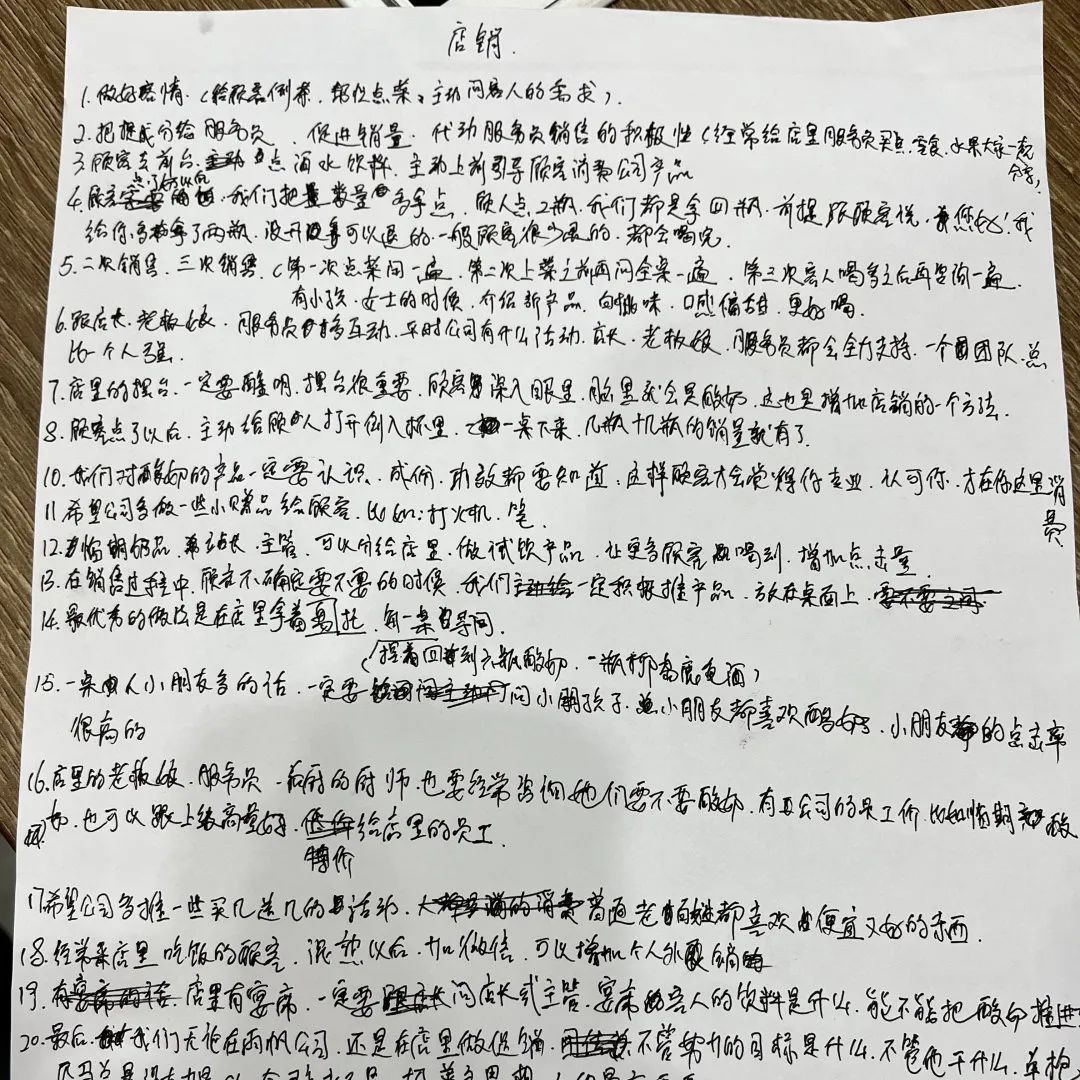 店销.
1. 做好客情.(给顾客倒茶.帮忙点菜,主动问客人的需求).
2. 把提成分给服务员、促进销量.代动服务员销售的积极性(经常给店里服务员买点零食.水果大家一起分享,
3. 顾客去前台点酒水饮料.主动上前引导顾客消费公司产品
4. 顾客点了奶以后.我们把数量多拿点.顾人点2瓶.我们都是拿四瓶.前提跟顾客说.您好我
给你多拿了两瓶.没开可以退的.一般顾客很少退的.都会喝完.
5. 二次销售.三次销售.(第一次点菜问一遍.第二次上菜之前再问全桌一遍.第三次客人喝多之后再咨询一遍
有小孩.女士的时候.介绍新产品.白桃味.口感偏甜.更好喝.
6. 跟店长.老板娘.服务员多互动.平时公司有什么活动.店长.老板娘.服务员都会全力支持.一个团队.总
比一个人强.
7. 店里的摆台.一定要醒明.摆台很重要.顾客深入眼里.脑里就会是酸奶.这也是增加店销的一个方法.
8. 顾客点了以后.主动给顾人打开倒入杯里.一桌下来.几瓶十几瓶的销量就有了.
10. 我们对酸奶的产品一定要认识.成份.功效都要知道.这样顾客才会觉得你专业.认可你.才在你这里消费
11 希望公司多做一些小赠品给顾客.比如:打火机.笔.
12. 临期奶品.站长.主管.可以分给店里.做试饮产品.让更多顾客喝到.增加点击量
13. 在销售过程中.顾客不确定要不要的时候.我们一定积极推产品.放在桌面上.
14. 最优秀的做法是在店里拿着托.每一桌询问.
(提着四到六瓶酸奶.一瓶高度电酒)
15. 一桌人小朋友多的话.一定要问小孩子.小朋友都喜欢酸奶.小朋友的点击率
很高的
16. 店里的老板娘.服务员.后厨的厨师.也要经常咨询她们要不要酸奶.有公司的员工价.比如临期酸
奶.也可以跟上级商量好.特价给店里的员工.
17 希望公司多推一些买几送几的活动.普通老百姓都喜欢便宜又好的东西.
18. 经常来店里吃饭的顾客.混熟以后.加微信.可以增加个人外销
19. 店里有宴席.一定要问店长或主管.宴席客人的饮料是什么.能不能把酸奶推进
20. 最后.我们无论在公司.还是在店里做促销.不管努力的目标是什么.不管他干什么.单枪